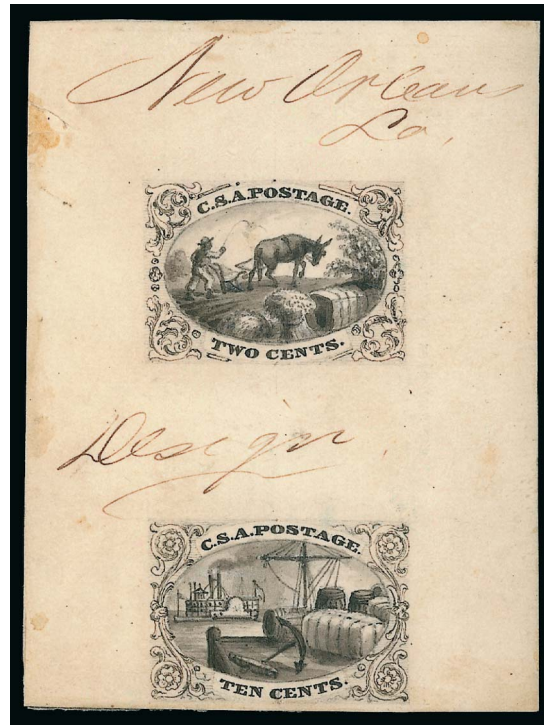 New Orleans
La.
C.S.A.POSTAGE.
TWO CENTS.
Design.
C.S.A.POSTAGE.
TEN CENTS.